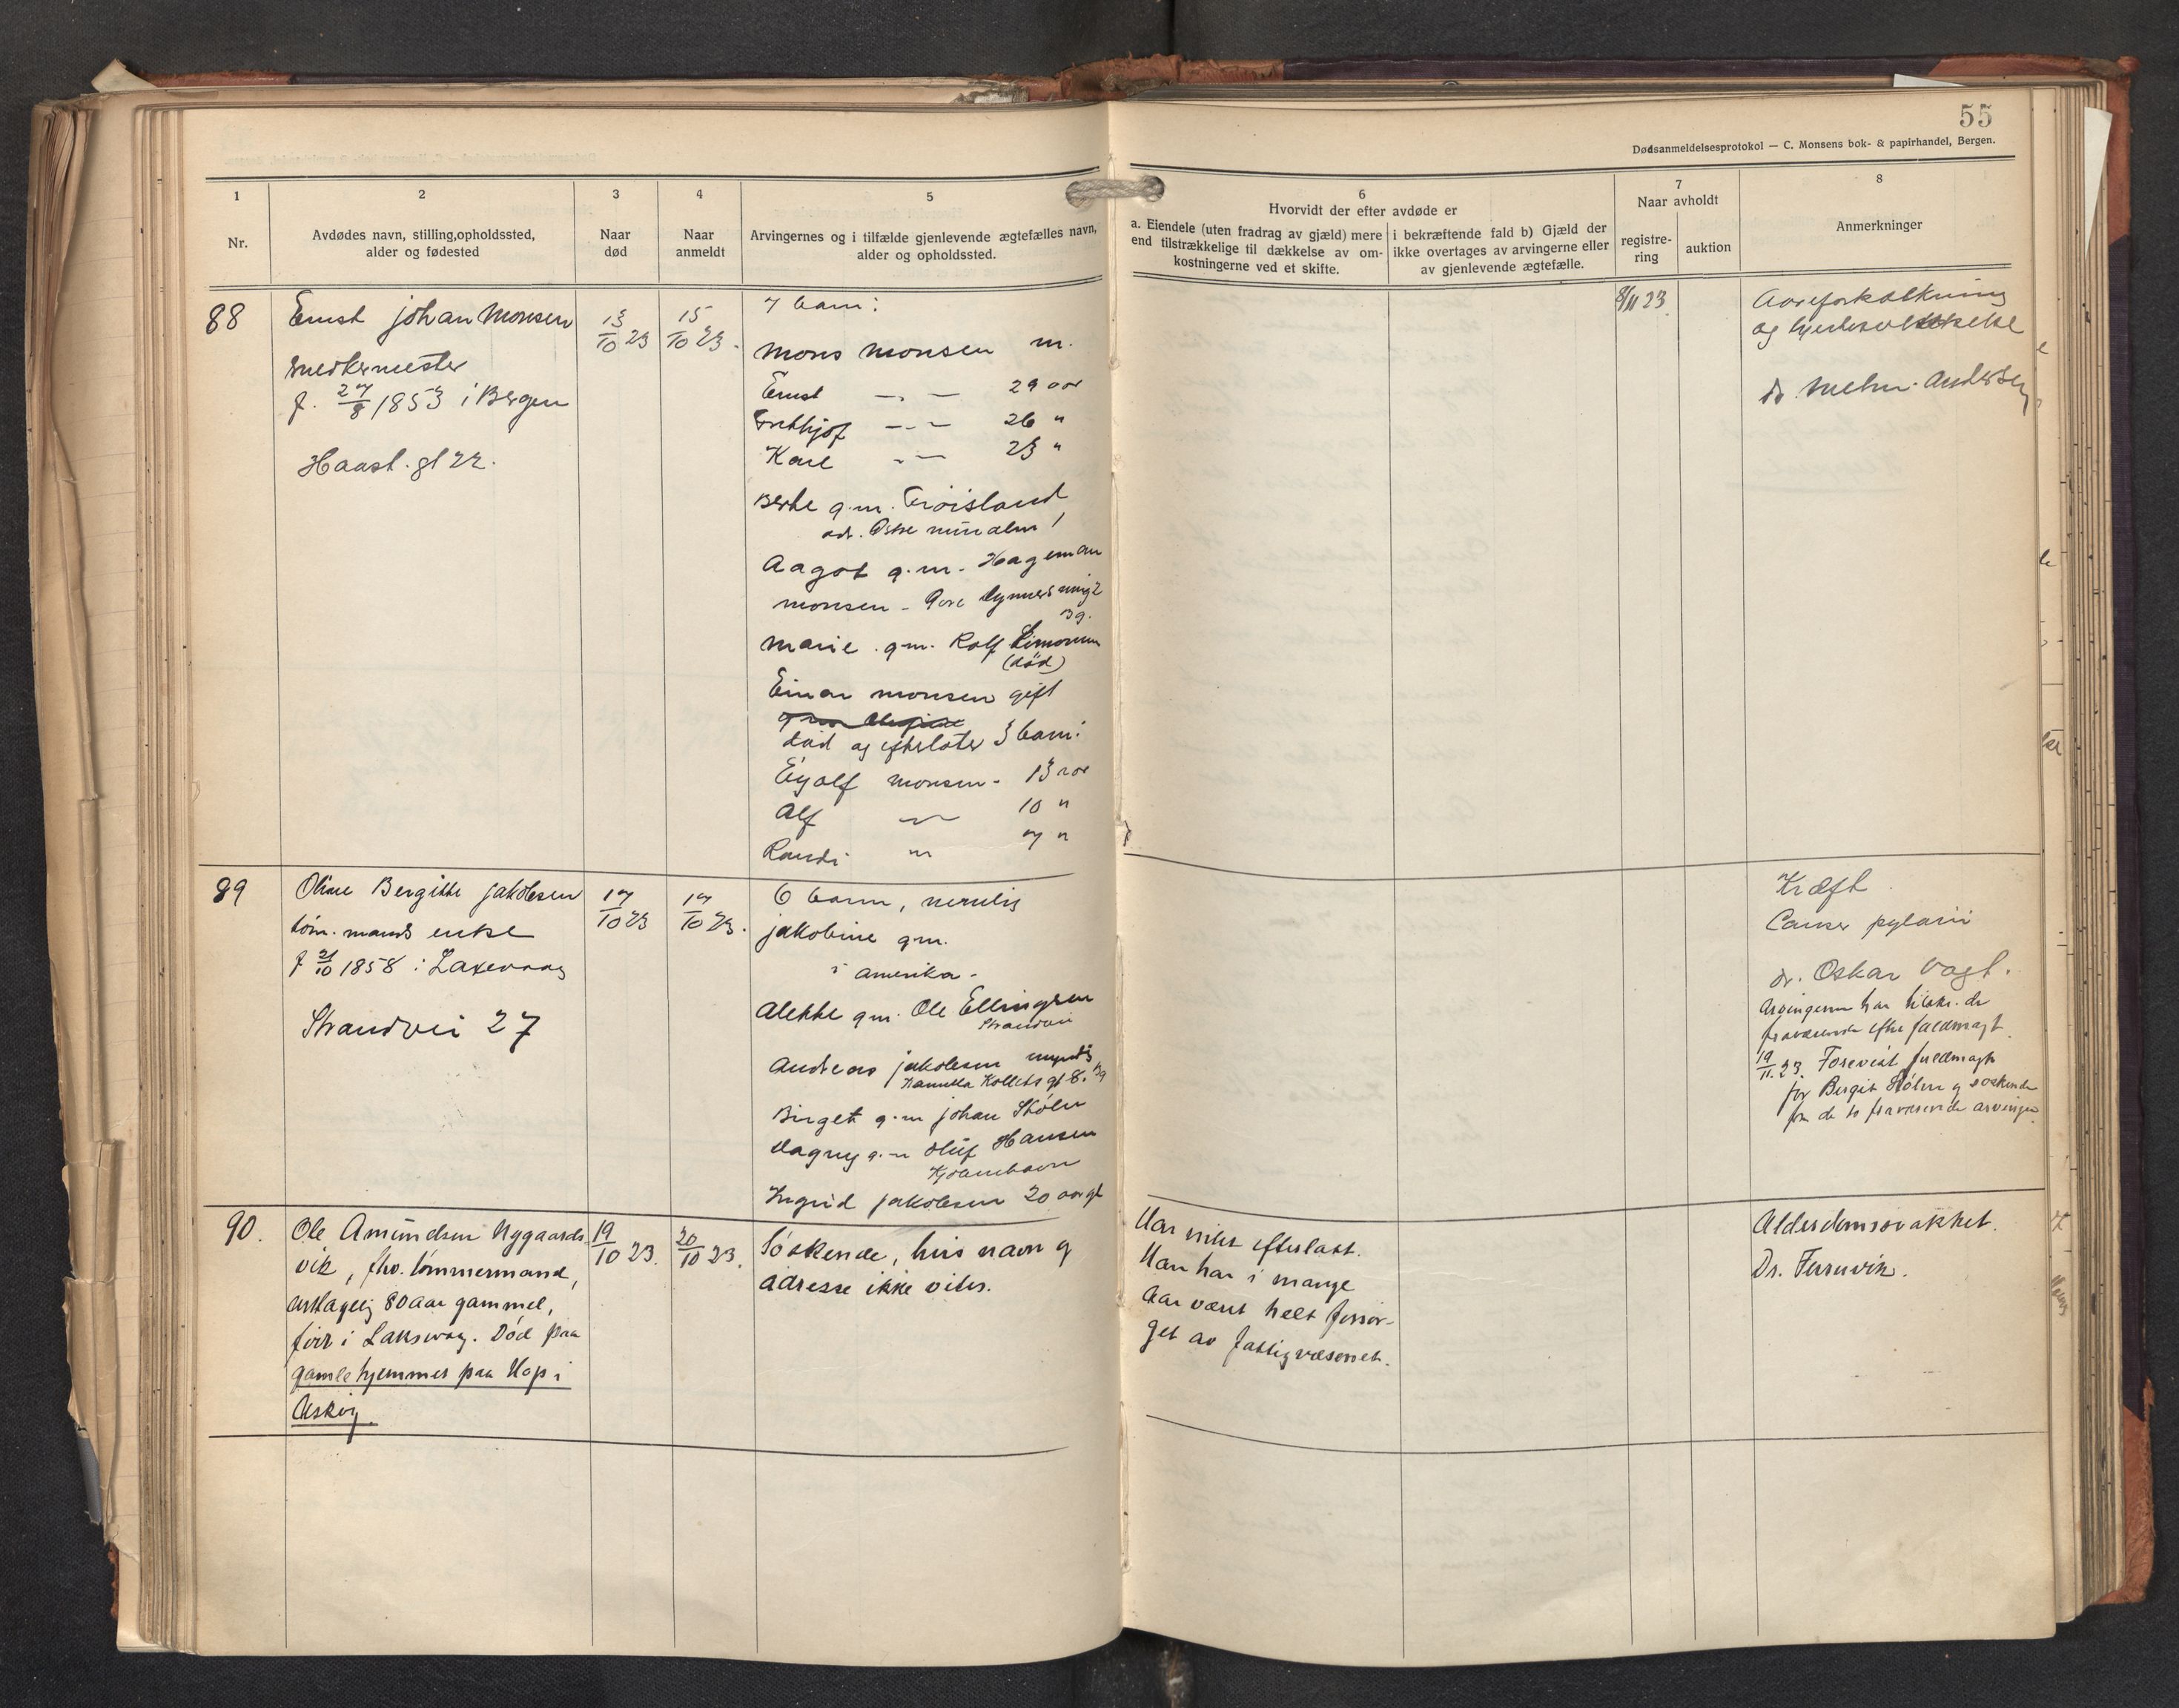 55
Dødsanmeldelsesprotokol — C. Monsens bok- & papirhandel, Bergen.
1
Nr.
2
Avdødes navn, stilling,opholdssted,
alder og fødested
3
Naar
død
4
Naar
anmeldt
5
Arvingernes og i tilfælde gjenlevende ægtefælles navn,
alder og opholdssted.
6
Hvorvidt der efter avdøde er
a. Eiendele (uten fradrag av gjæld) mere
end tilstrækkelige til dækkelse av om-
kostningerne ved et skifte.
i bekræftende fald b) Gjæld der
ikke overtages av arvingerne eller
av gjenlevende ægtefælle.
7
Naar avholdt
registre-
ring
auktion
8
Anmerkninger
88
Ernst Johan Monsen
snedkermester
f. 27/8 1853 i Bergen
Haast. gt 22.
13/10 23
15/10 23.
7 barn:
Mons Monsen m.
Ernst — 29 aar
Frithjof — 26 "
Karl — 23 "
Berthe g.m. Frøisland
Aagot g.m. Hageman
Monsen
Bg.
Marie g.m. Rolf Simonsen
(død)
Einar Monsen gift
død og efterlater 3 barn:
Eyolf Monsen - 13 aar
Alf " 10 "
Randi " 7 "
8/11 23
Aareforkalkning
og
dr. Andersen
89
Oline Bergitte Jakobsen
tøm. mands enke
f 21/10 1858 i Laxevaag
Strandvei 27
17/10 23
17/10 23.
6 barn, nemlig
Jakobine gm.
i Amerika -
Alette gm. Ole Ellingsen
Strandvei
Andreas Jakobsen myndig
Kamilla Kolletts gt 8. Bg
Birget g.m Johan Stølen
Dagny g.m Oluf Hansen
Kjøbenhavn
Ingrid Jakobsen 20 aar gl
Kræft
Cancer pylorii
dr. Oskar Vogt.
Arvingerne har tilskr. de
fraværende efter fuldmagt
19/11.23. Forevist fuldmagt
for Bergit Stølen og søskende
fra de to fraværende arvinger.
90.
Ole Amundsen Nygaards-
vik, fhv. tømmermand,
antagelig 80 aar gammel,
før i Laksevaag. Død paa
gamlehjemmet paa Hop i
Askøy.
19/10 23.
20/10 23.
Søskende, hvis navn og
adresse ikke vites.
Har intet efterlatt.
Han har i mange
aar vært helt forsør-
get av fattigvæsenet.
Alderdomssvakhet.
Dr. Fersnvik.